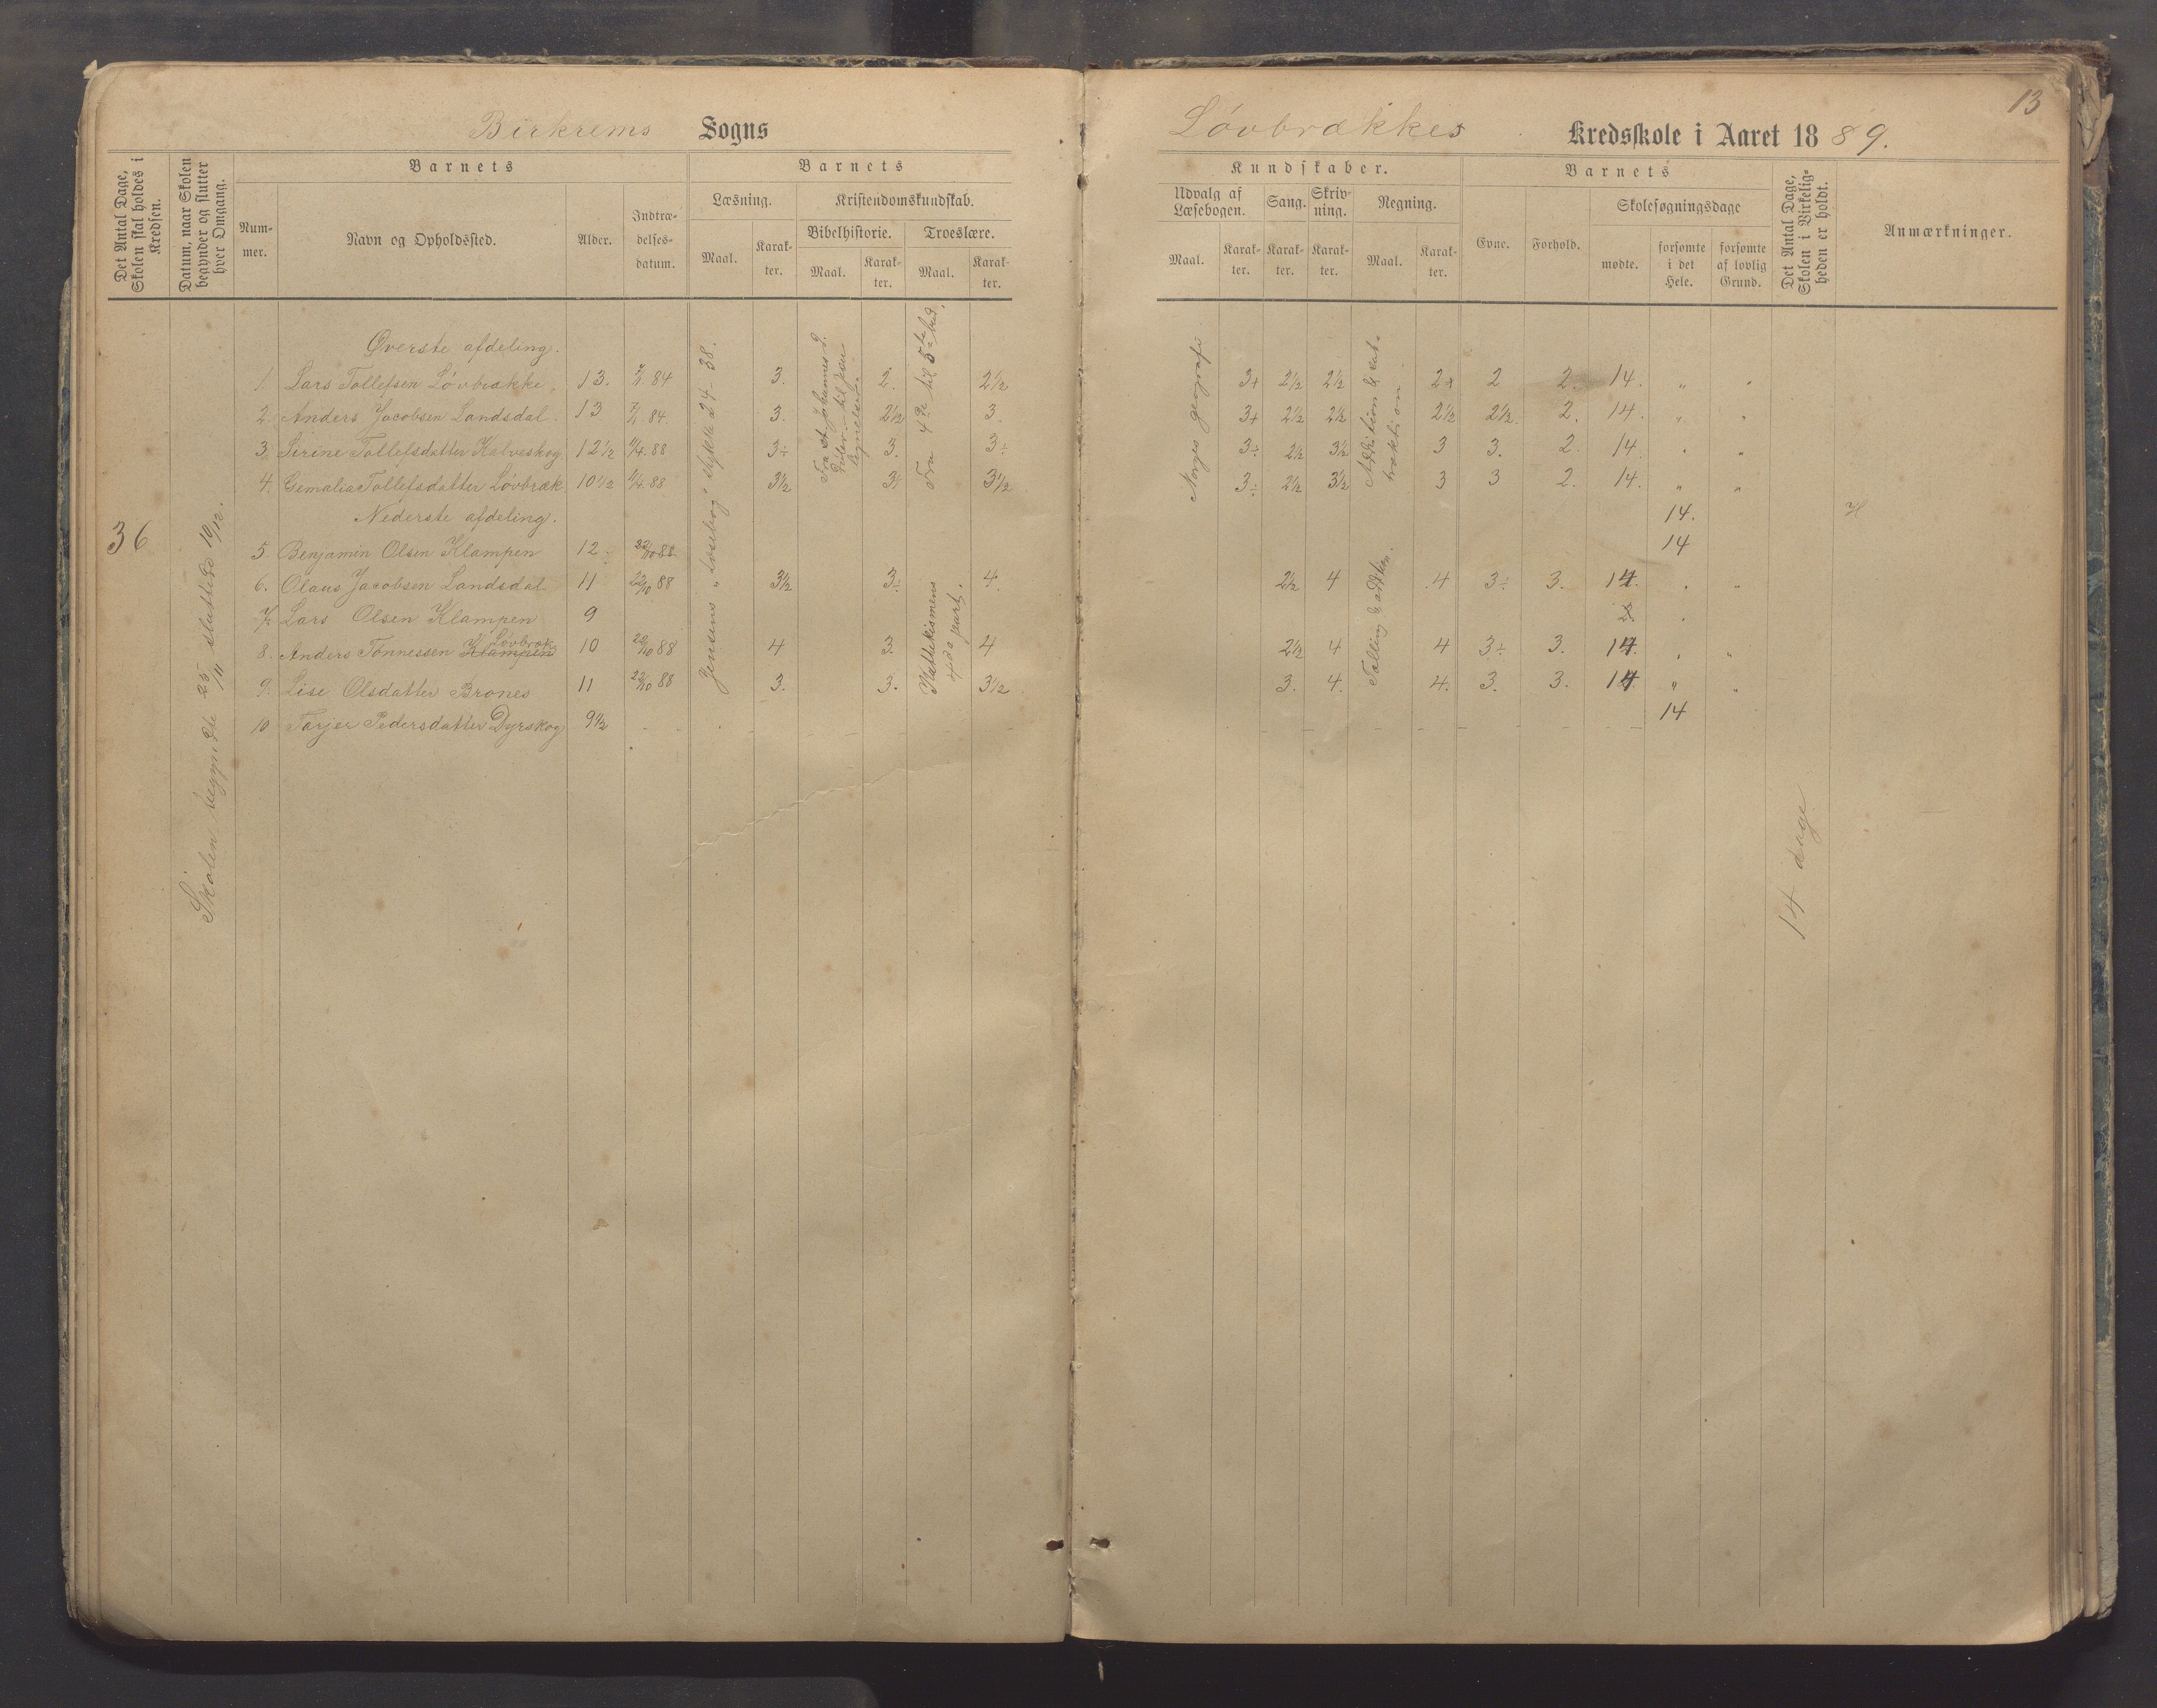 Birkrems Sogns
Løvbrækkes Kredsskole i Aaret 1889.
13
Det Antal Dage, Skolen skal holdes i Kredsen.
Datum, naar Skolen begynder og slutter hver Omgang.
Barnets
Nummer.
Navn og Opholdssted.
Alder.
Indtrædelsesdatum.
Barnets
Læsning.
Maal.
Karakter.
Kristendomskundskab.
Bibelhistorie.
Maal.
Karakter.
Troeslære.
Maal.
Karakter.
Kundskaber.
Udvalg af Læsebogen.
Maal.
Karakter.
Sang.
Karakter.
Skrivning.
Karakter.
Regning.
Maal.
Karakter.
Barnets
Evne.
Forhold.
Skolesøgningsdage
mødte.
forsømte i det Hele.
forsømte af lovlig Grund.
Det Antal Dage, Skolen i Virkeligheden er holdt.
Anmærkninger.
36
Skolen begyndte 25/11 sluttede 10/12.
Jensens „Læsebog" stykke 24-38.
Fra 4de til 5te bud.
Norges geografi
Øverste afdeling.
1. Lars Tollefsen Løvbrække. 13. 84 3. 2. 2½ 3+ 2½ 2½ 2+ 2 2. 14. „ „
2. Anders Jacobsen Landsdal. 13 84 3. 2½ 3. 3+ 2½ 2½ 2½ 2½. 2. 14. „ „
3. Sirine Tollefsdatter Kalveskog 12½ 4.88 3÷ 3. 3÷ 3÷ 2½ 3½ 3 3. 2. 14. „ „
4. Gemalia Tollefsdatter Løvbræk 10½ 4.88 3½ 3½ 3½ 3÷ 2½ 3½ 3 3 2. 14. „ „
Nederste afdeling. 14.
5. Benjamin Olsen Klampen 12. 22/10 88 14
6. Olaus Jacobsen Landsdal 11 22/10 88 3½ 3÷ 4. 2½ 4 4 3÷ 3. 14. „ „
7. Lars Olsen Klampen 9
8. Anders Tønnessen Klampen Løvbræk 10 22/10 88 4 3. 4 2½ 4 4 3÷ 3. 14. „ „
9. Lise Olsdatter Brones 11 22/10 88 3. 3. 3½ 3. 4. 4. 3. 3. 14. „ „
10 Tarjer Pedersdatter Dyrskog 9½ 14
Kattekismens 4de part.
14 dage